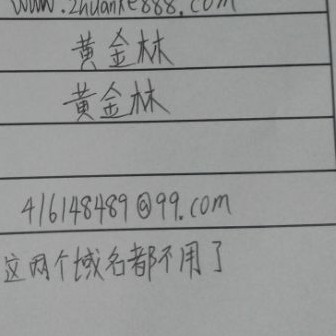 www.zhuanke888.com
黄金林
黄金林
416148489@99.com
这两个域名都不用了